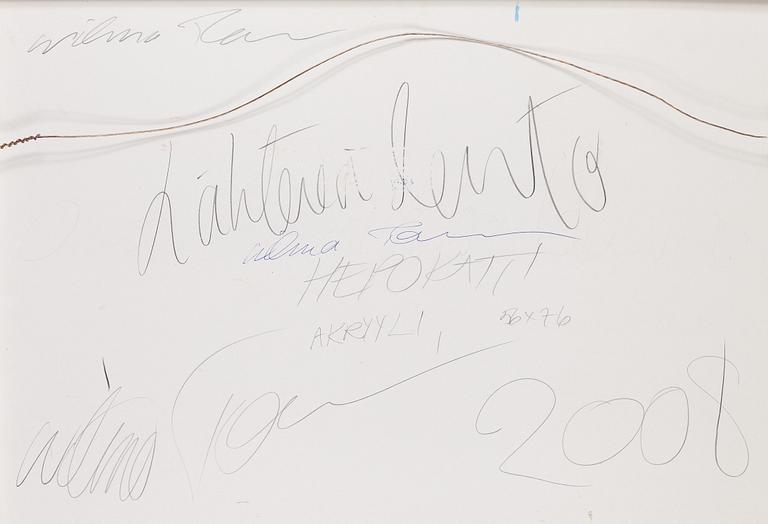 Wilma
Lähtevä lento
Wilma
HEPOKATTI
AKRYYLI, 56x76
Wilma
2008